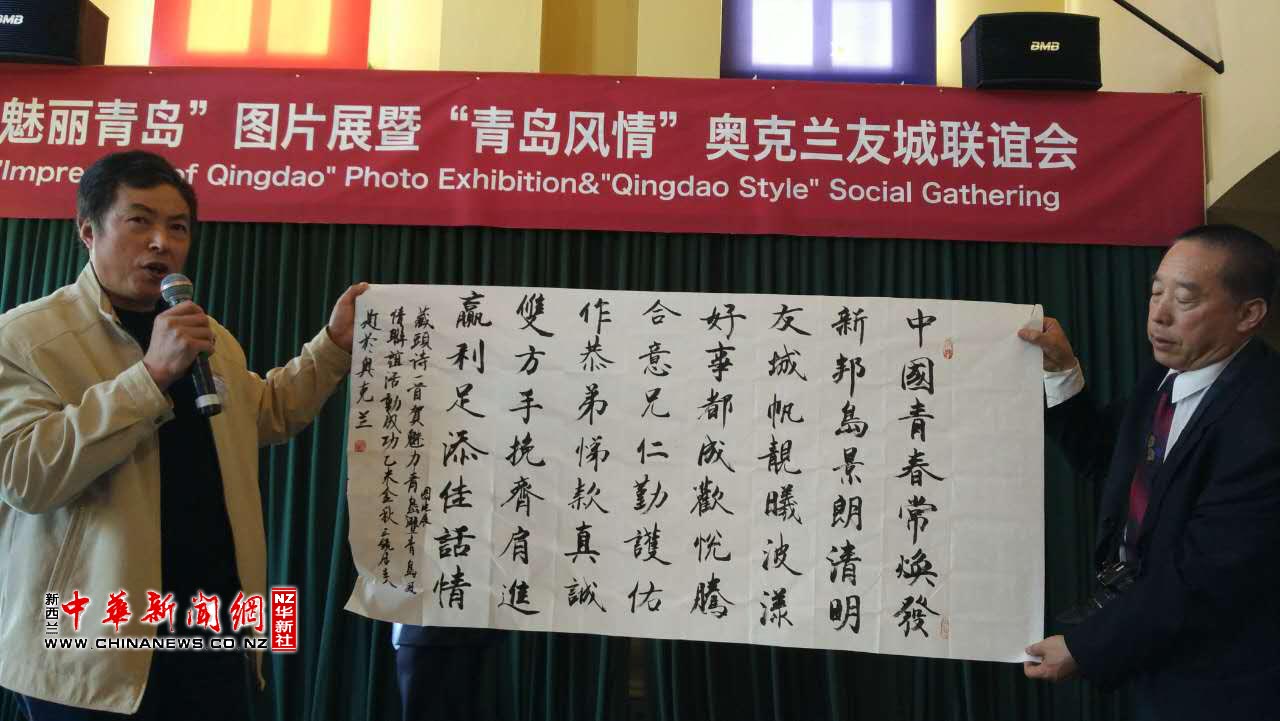 BMB
BMB
魅丽青岛”图片展暨“青岛风情”奥克兰友城联谊会
of Qingdao" Photo Exhibition&"Qingdao Style" Social Gathering
中國青春常煥發
新邦島景朗清明
友城帆靚曦波漾
好事都成歡悅騰
合意兄仁勤護佑
作恭弟悌款真誠
雙方手挽齊肩進
贏利足添佳話情
藏頭诗一首贺魅力青島圖片展暨青島风
情聯誼活動成功乙未金秋
题於奥克兰
新西兰
中華新闻網
NZ
华新社
WWW.CHINANEWS.CO.NZ